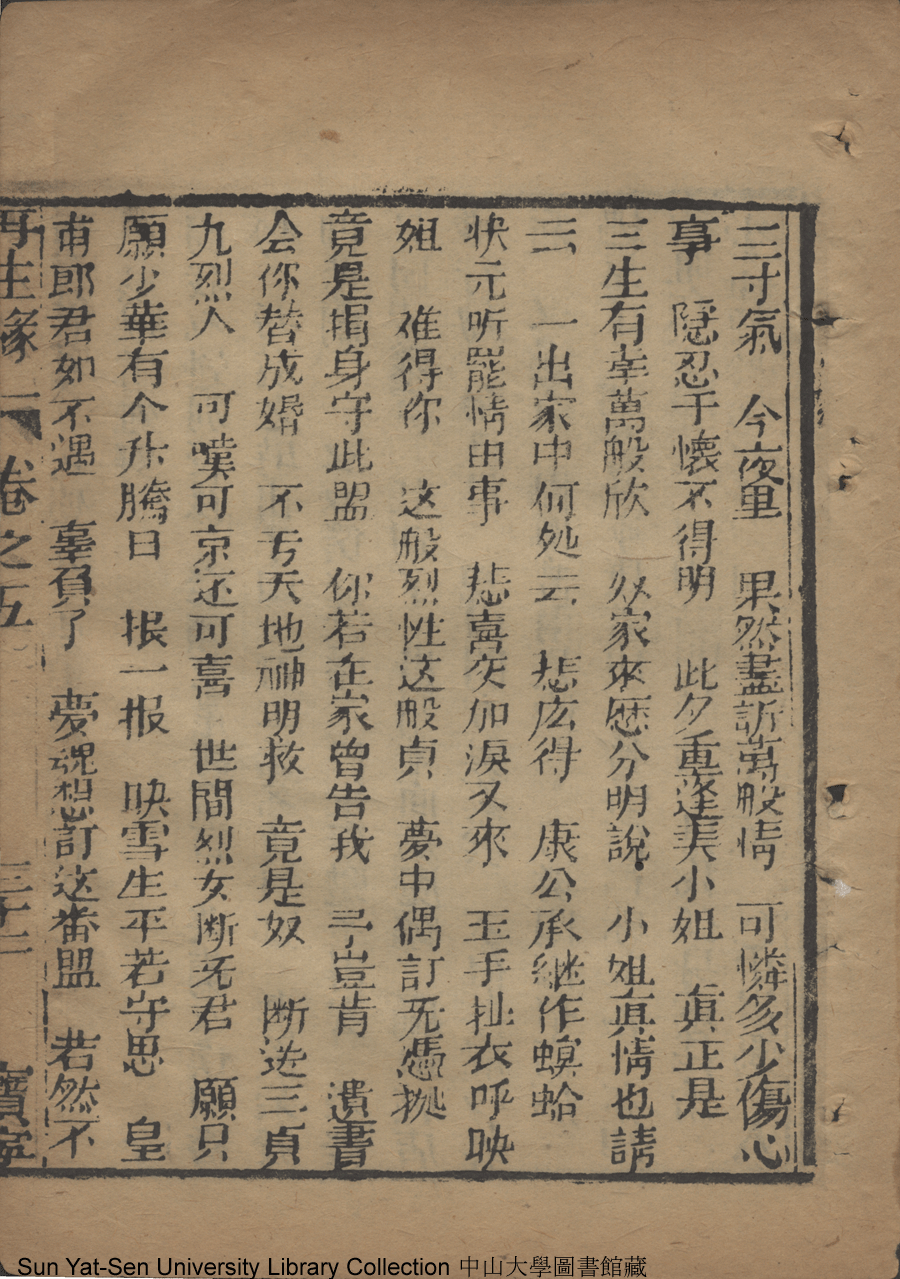 三寸氣　今夜里　果然盡訴萬般情　可憐多少傷心
事　隱忍于懷不得明　此夕重逢美小姐　真正是
三生有幸萬般欣　奴家來歷分明說　小姐真情也請
云　一出家中何処去　悲広得　康公承継作螟蛉
状元听罷情由事　悲喜交加淚又來　玉手扯衣呼映
姐　难得你　这般烈性这般貞　夢中偶訂无憑拠
竟是捐身守此盟　你若在家曾告我　弓豈肯　遺書
会你替成婚　不亏天地神明救　竟是奴　断送三貞
九烈人　可嘆可京还可喜　世間烈女断无君　願只
願少華有个升騰日　报一报　映雪生平若守思　皇
甫郎君如不遇　辜負了　夢魂想訂这番盟　若然不
再生緣　卷之五　三十二　寶寧
Sun Yat-Sen University Library Collection 中山大學圖書館藏